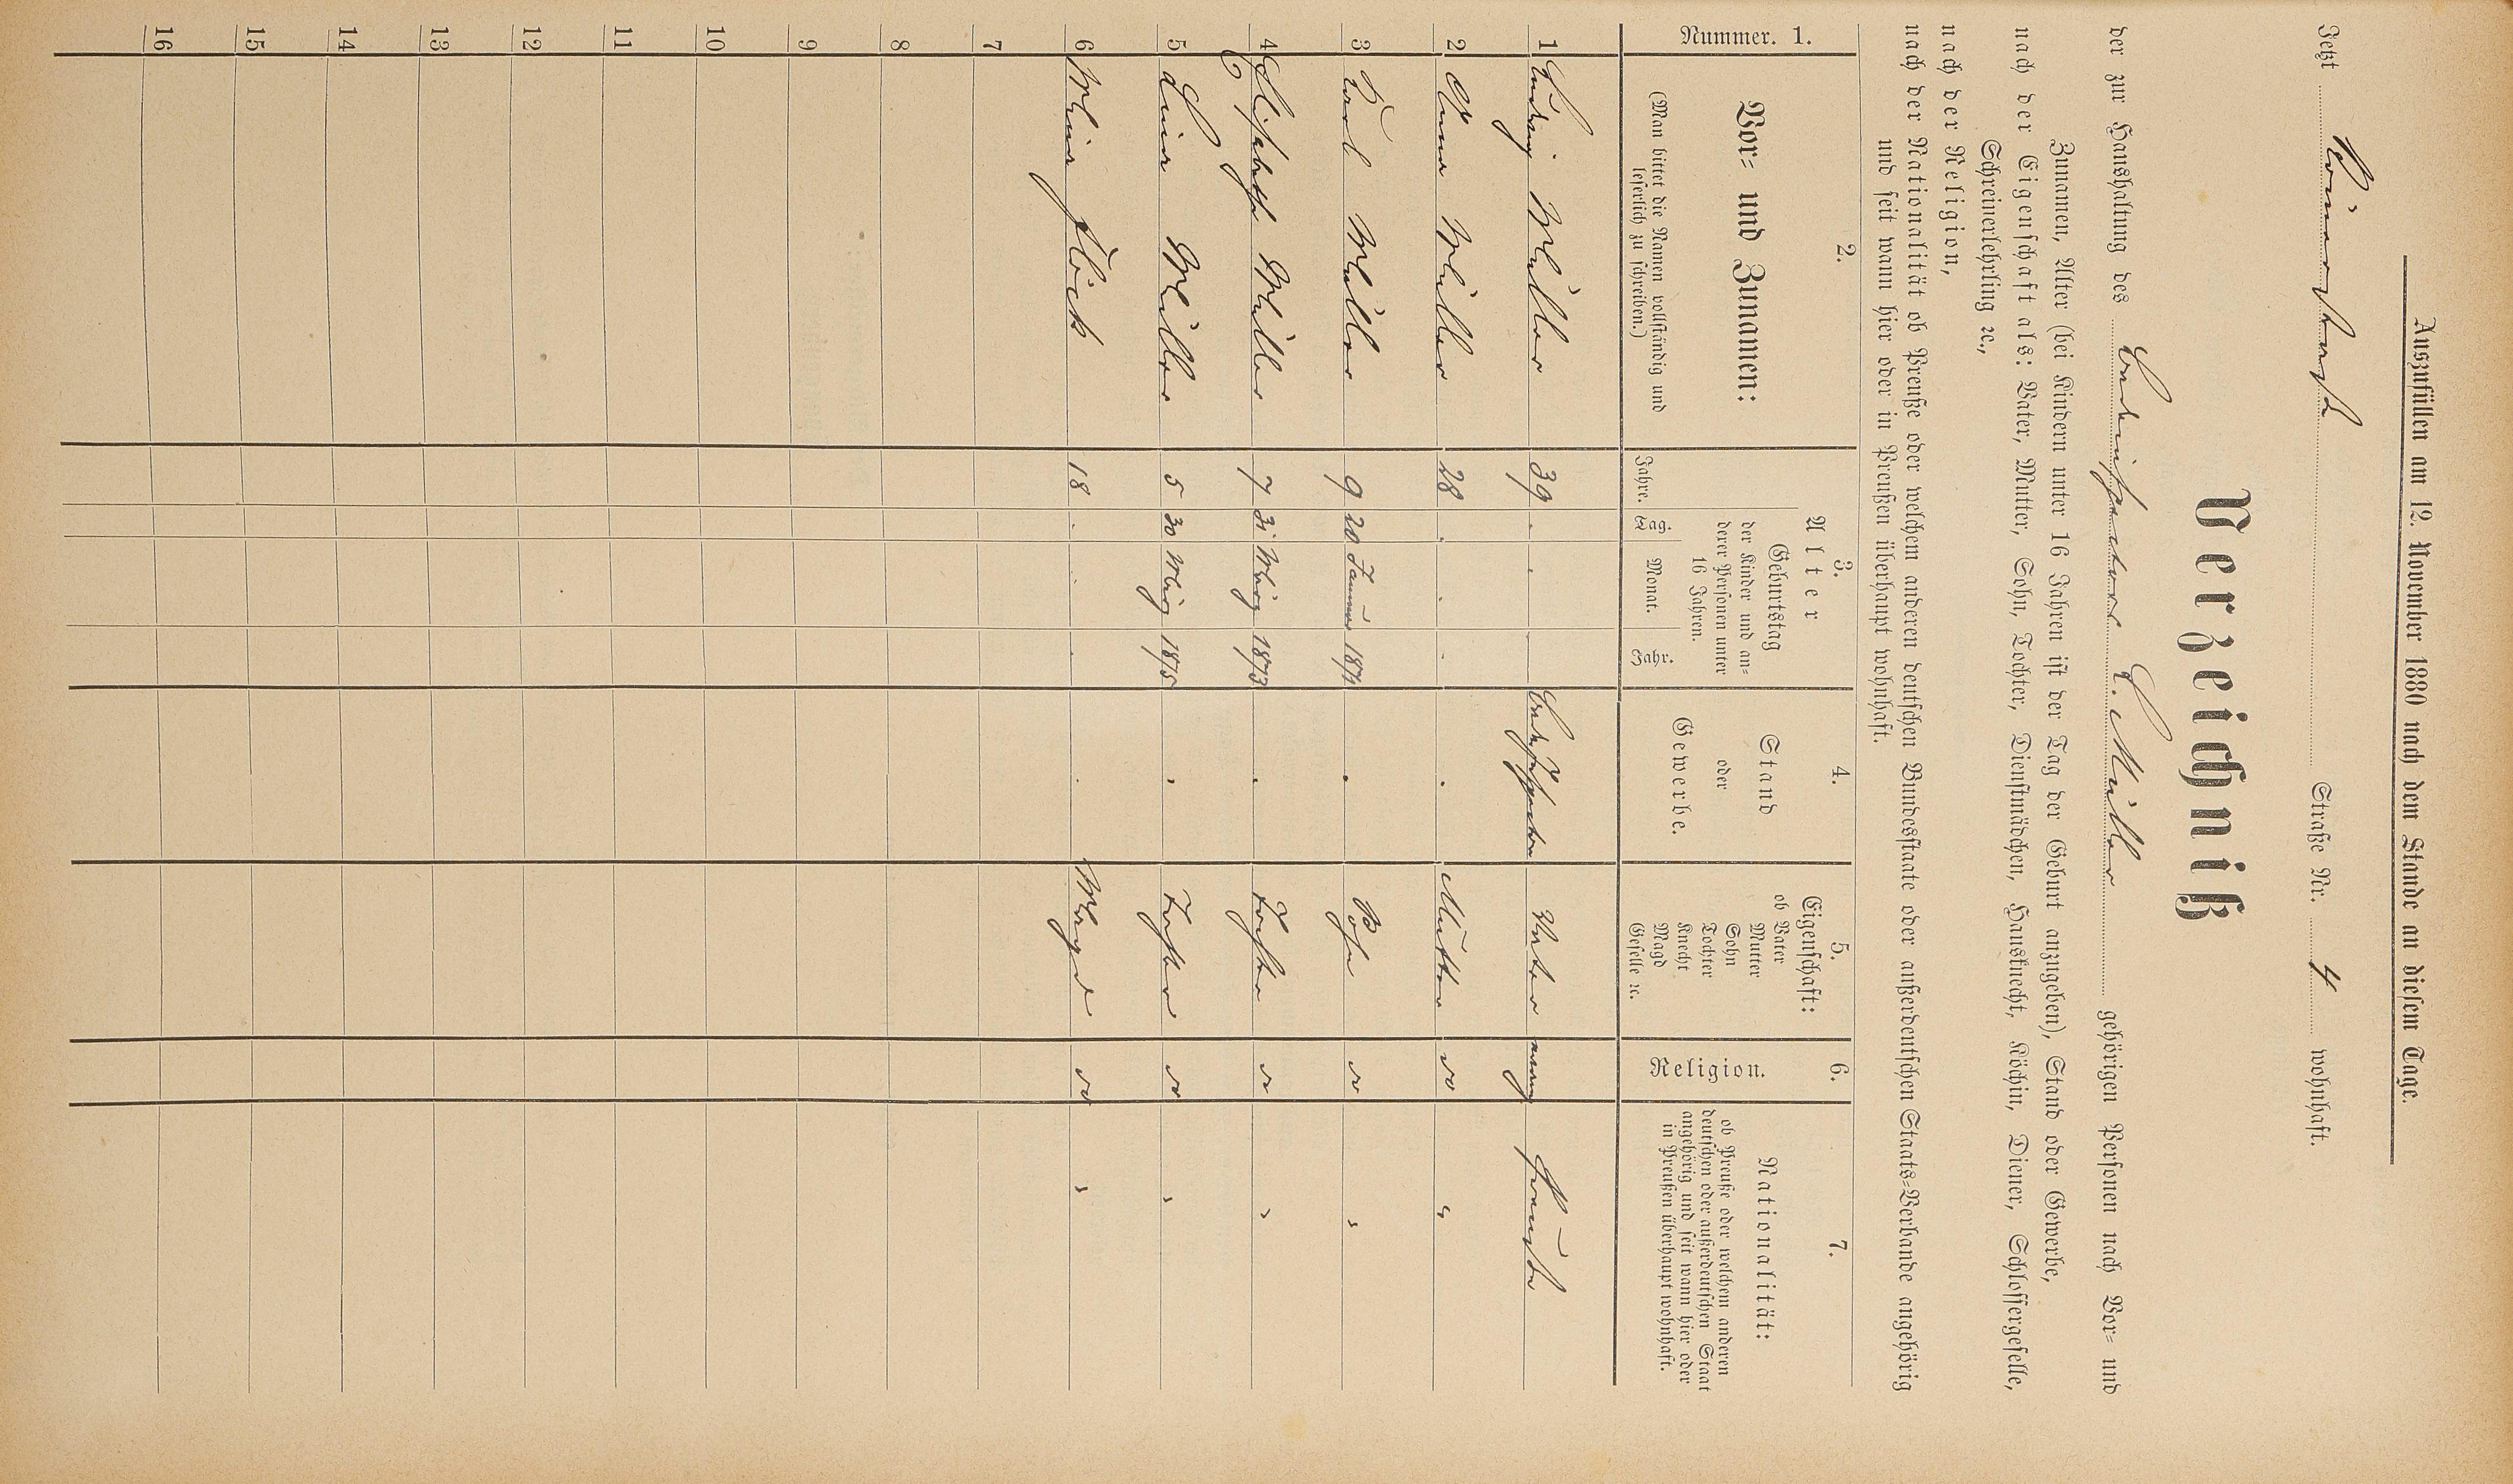 Auszufüllen am 12. November 1880 nach dem Stande an diesem Tage.
Jetzt Römerstraße Straße Nr. 4 wohnhaft.
Verzeichniß
der zur Haushaltung des L. Müller gehörigen Personen nach Vor- und
Zunamen, Alter (bei Kindern unter 16 Jahren ist der Tag der Geburt anzugeben), Stand oder Gewerbe,
nach der Eigenschaft als: Vater, Mutter, Sohn, Tochter, Dienstmädchen, Hausknecht, Köchin, Diener, Schlossergeselle,
Schreinerlehrling ꝛc.,
nach der Religion,
nach der Nationalität ob Preuße oder welchem anderen deutschen Bundesstaate oder außerdeutschen Staats-Verbande angehörig
und seit wann hier oder in Preußen überhaupt wohnhaft.
Nummer. 1.
2.
Vor- und Zunamen:
(Man bittet die Namen vollständig und
leserlich zu schreiben.)
3.
Alter
Jahre.
Geburtstag
der Kinder und an-
derer Personen unter
16 Jahren.
Tag. Monat. Jahr.
4.
Stand
oder
Gewerbe.
5.
Eigenschaft:
ob Vater
Mutter
Sohn
Tochter
Knecht
Magd
Geselle ꝛc.
6.
Religion.
7.
Nationalität:
ob Preuße oder welchem anderen
deutschen oder außerdeutschen Staat
angehörig und seit wann hier oder
in Preußen überhaupt wohnhaft.
1 Ludwig Müller 39 Vater evang
2 Anna Müller 28 Mutter do "
3 Karl Müller 9 20 Januar 1871 Sohn do "
4 Elisabethe Müller 7 31 März 1873 Tochter do "
5 Müller 5 30 März 1875 Tochter do "
6 18 Magd do "
7
8
9
10
11
12
13
14
15
16